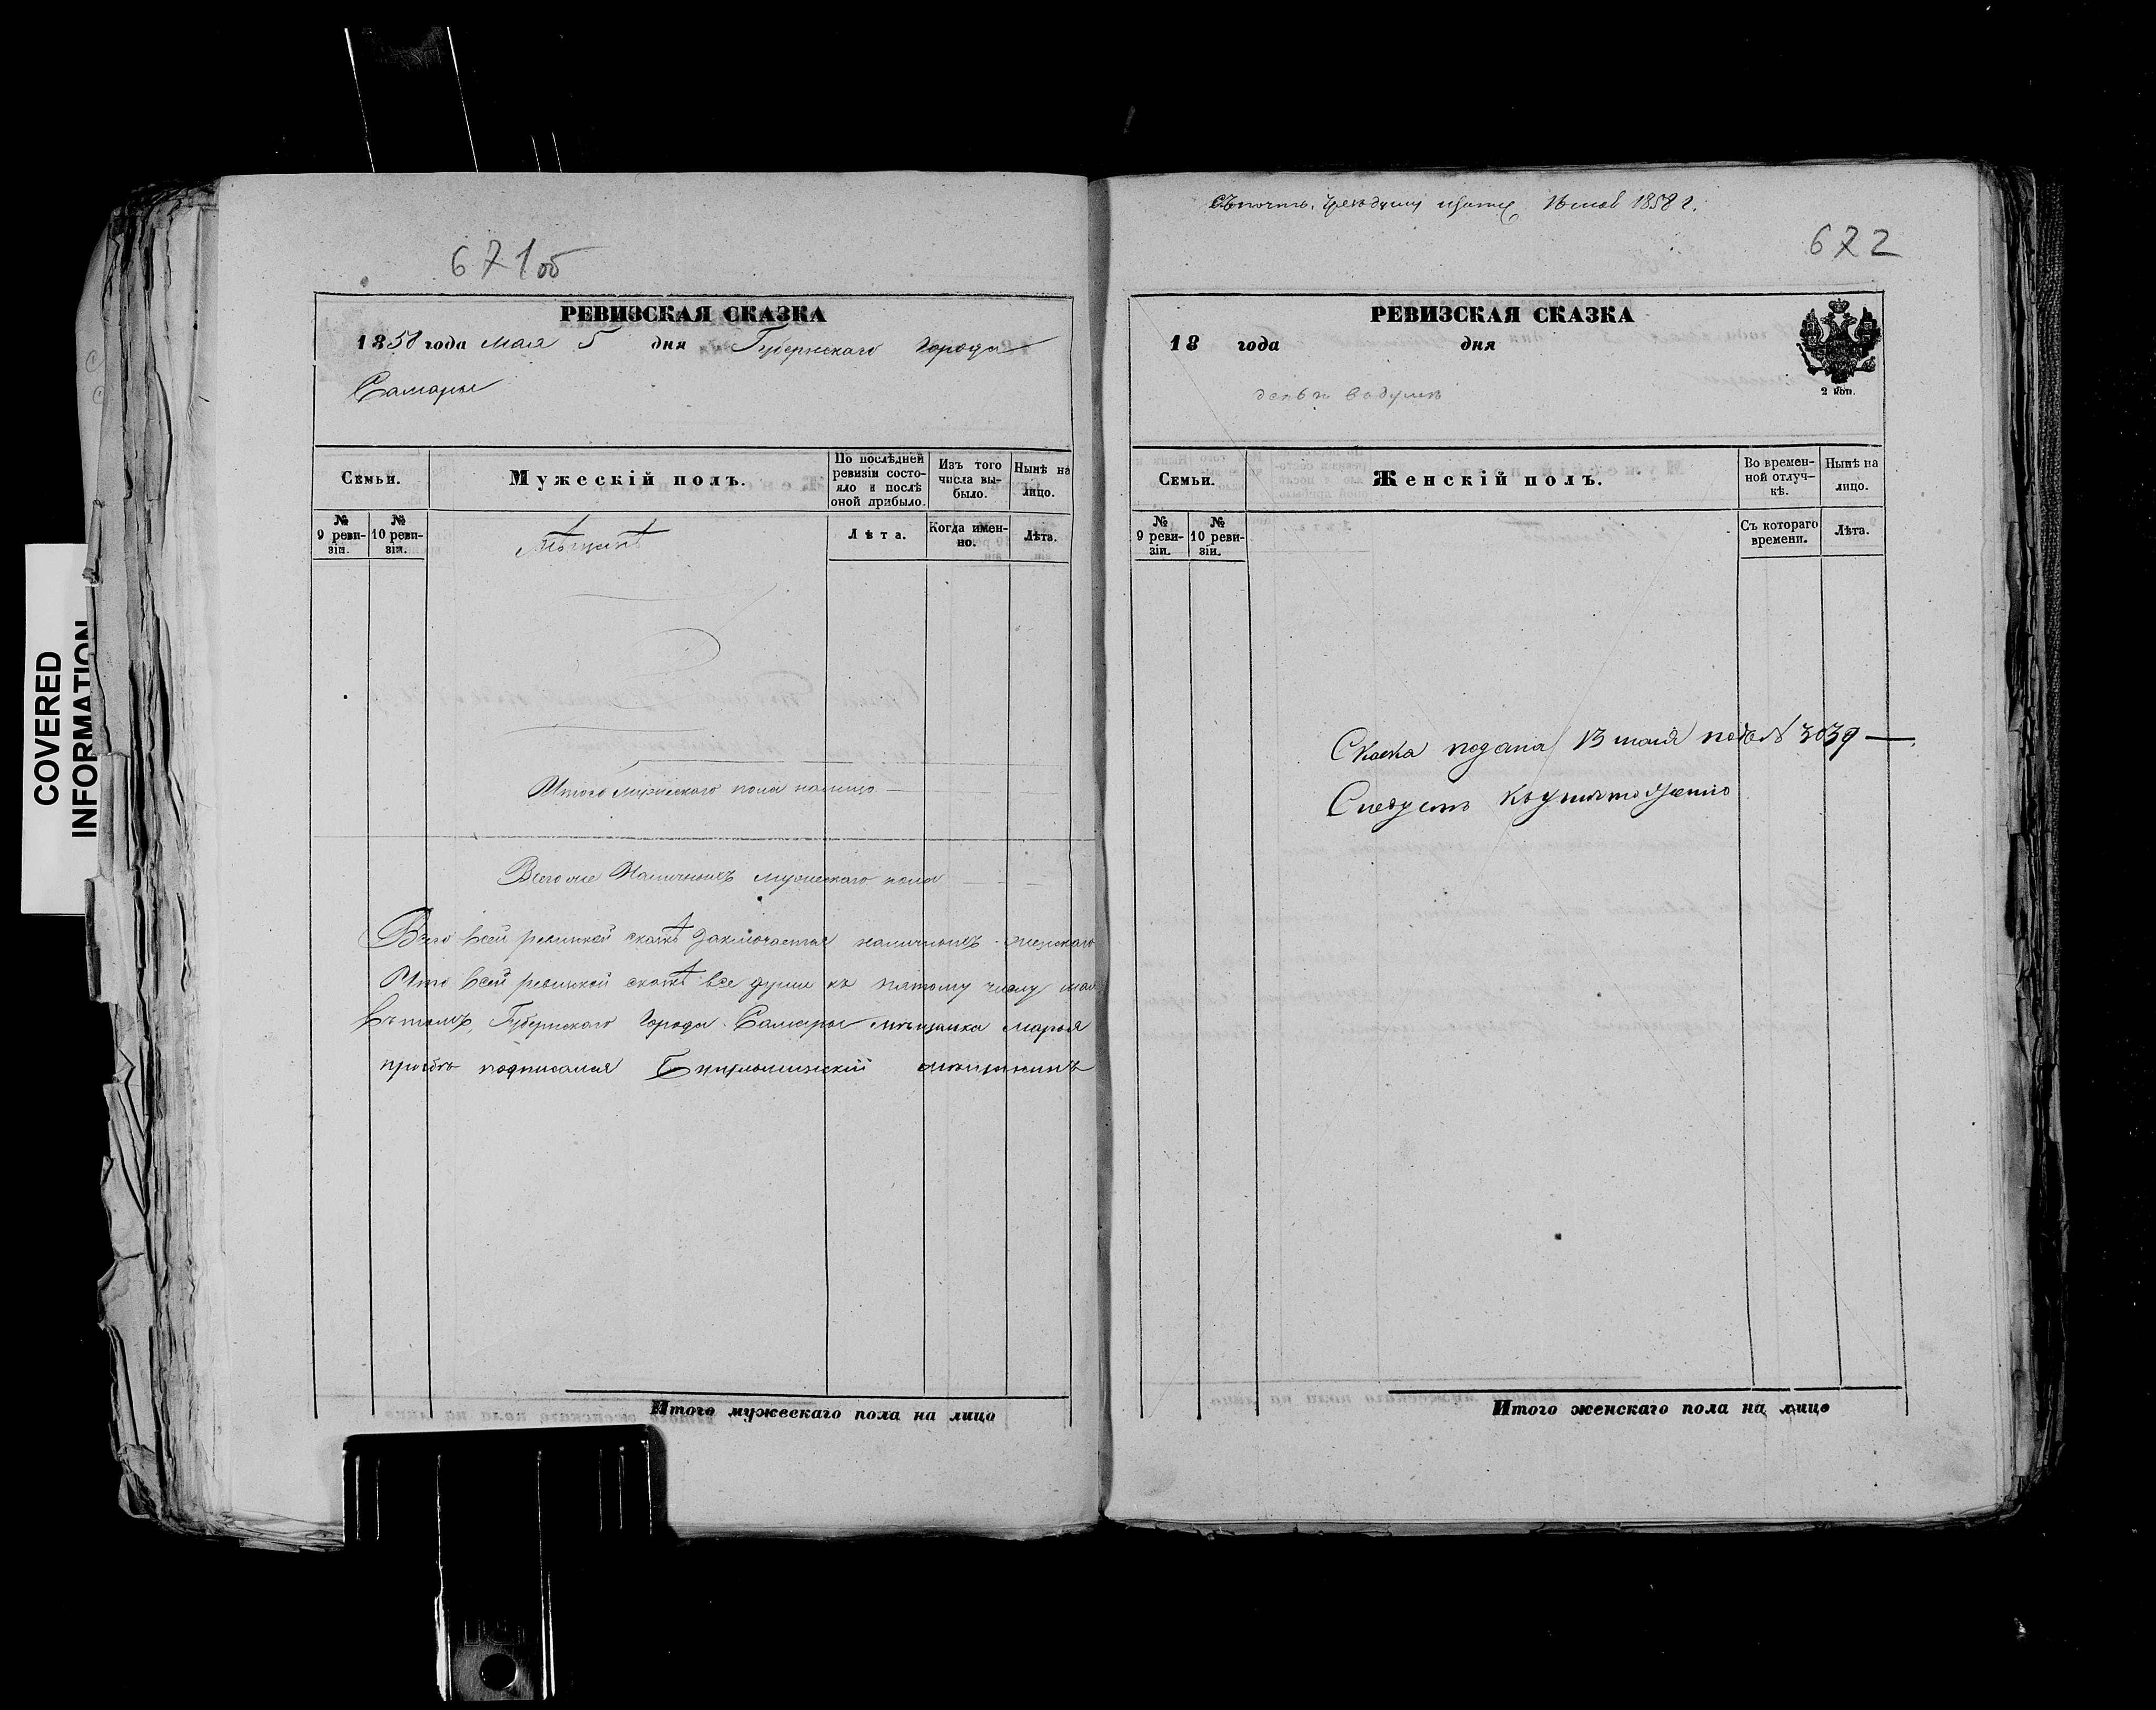 COVERED
INFORMATION
671об
РЕВИЗСКАЯ СКАЗКА
1858 года мая 5 дня Губернскаго Города
Самары
Семьи.
Мужескій полъ.
По послѣдней ревизіи состояло и послѣ оной прибыло.
Изъ того числа выбыло.
Нынѣ на лицо.
№ 9 ревизіи.
№ 10 ревизіи.
Лѣта.
Когда именно.
Лѣта.
Итого мужескаго пола налицо
Всего же Наличныхъ мужескаго пола
Всего въ сей ревизкой сказкѣ заключается наличныхъ женскаго
Что въ сей ревизкой сказкѣ все души къ пятому числу мая
въ томъ, Губернскаго Города Самары мѣщанка Марья
прозбѣ подписался мѣщанинъ
Итого мужескаго пола на лицо
1858 г.
672
РЕВИЗСКАЯ СКАЗКА
18 года дня
2 коп.
Семьи.
Женскій полъ.
Во временной отлучкѣ.
Нынѣ на лицо.
№ 9 ревизіи.
№ 10 ревизіи.
Съ котораго времени.
Лѣта.
Сказка подана 13 маія подъ № 3039
Слѣдуетъ къ уничтоженію
Итого женскаго пола на лицо